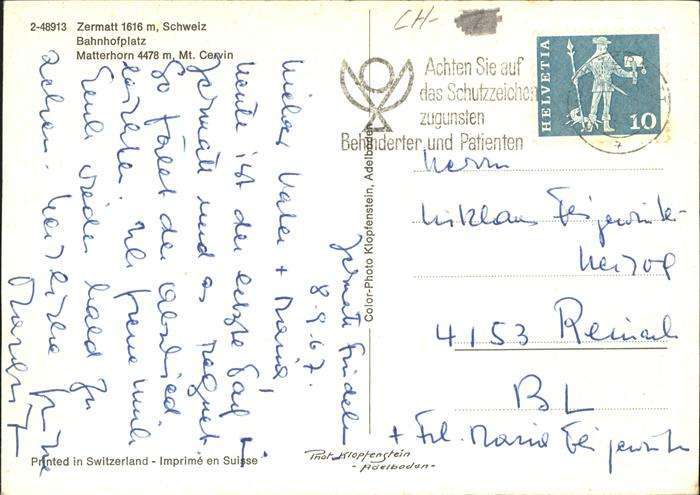 2-48913 Zermatt 1616 m, Schweiz
Bahnhofplatz
Matterhorn 4478 m, Mt. Cervin
Zermatt
8.9.67.
Lieber Vater + Maria
Heute ist der letzte Tag in
Zermatt und es regnet.
So fällt der Abschied
leichter. Ich freue mich
Euch wieder bald zu
sehen. Herzliche Grüsse
Printed in Switzerland - Imprimé en Suisse
Color-Photo Klopfenstein, Adelboden
Phot. Klopfenstein
- Adelboden -
CH-
Achten Sie auf
das Schutzzeichen
zugunsten
Behinderter und Patienten
HELVETIA
10
Herrn
Niklaus Feigenwinter-
Herzog
4153 Reinach
BL
+ Frl. Maria Feigenwinter